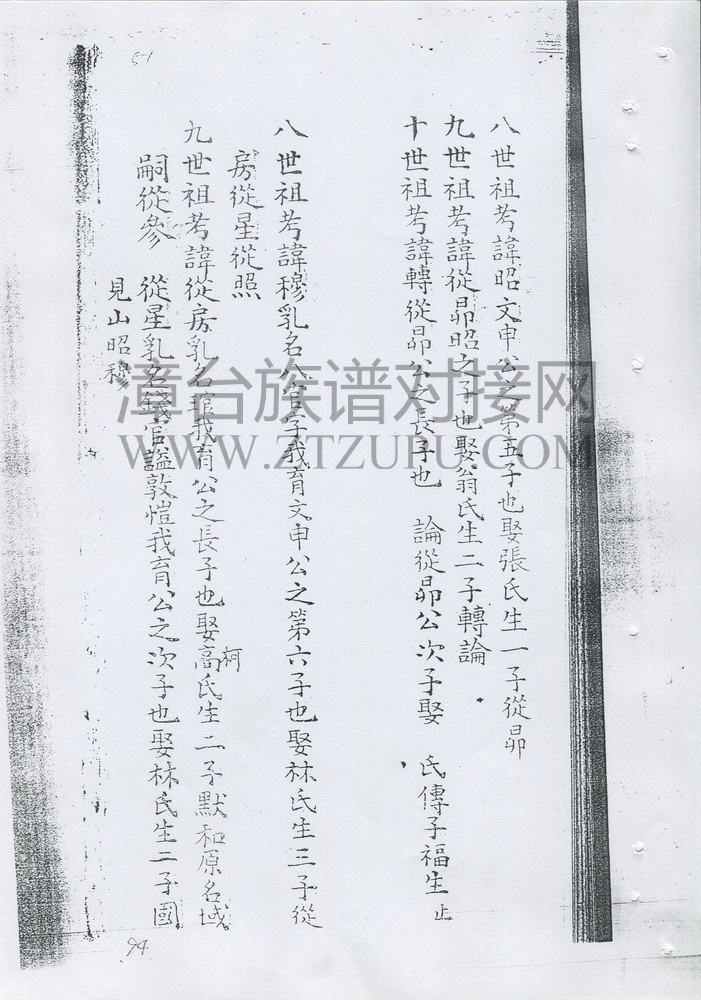 八世祖考諱昭文申公之第五子也娶張氏生一子從昴
九世祖考諱從昴昭之子也娶翁氏生二子轉論
十世祖考諱轉從昴公之長子也 論從昴公次子娶 氏傳子福生 止
八世祖考諱穆乳名八官字我育文申公之第六子也娶林氏生三子從
房從星從照
九世祖考諱從房乳名 我育公之長子也娶高氏生二子默和原名域
柯
嗣從參 從星乳名錢官謚敦愷我育公之次子也娶林氏生二子國
見山昭穆
漳台族谱对接网
WWW.ZTZUPU.COM
51
94